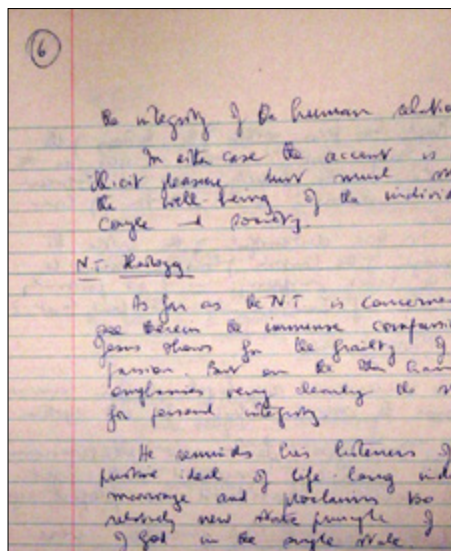 6
the integrity of the human relation
In either case the accent is
illicit pleasure but much
the well-being of the individ
couple and society.
N.T. Theology.
As far as the N.T. is concerned
see therein the immense compassi
Jesus shows for the frailty of
passion. But on the other hand
emphasises very clearly the
for personal integrity.
He reminds his listeners of
positive ideal of life-long
marriage and proclaims too
relatively new state principle of
of God in the single state.